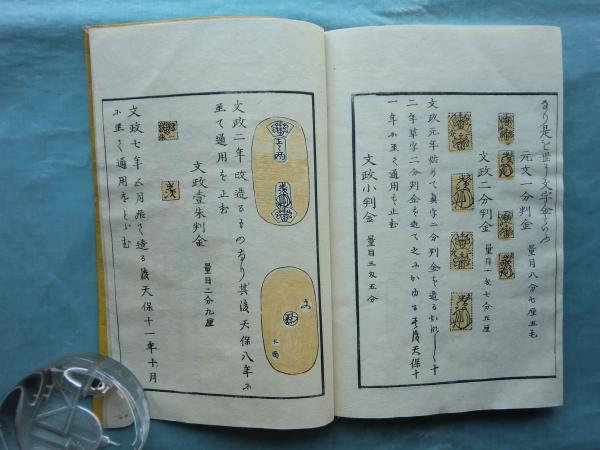 なり是を世に文字金といふ
元文一分判金
量目八分七厘五毛
文政二分判金
量目一匁七分五厘
文政元年始りて真字二分判金を造る
十二年草字二分判金を造て之にかゆる
天保十一年に至て通用を止む
文政小判金
量目三匁五分
文政二年改造るものなり其後天保八年に
至て通用を止む
文政壹朱判金
量目二分九厘
文政七年五月
造る後天保十一年十月
に至て通用をとゞむ